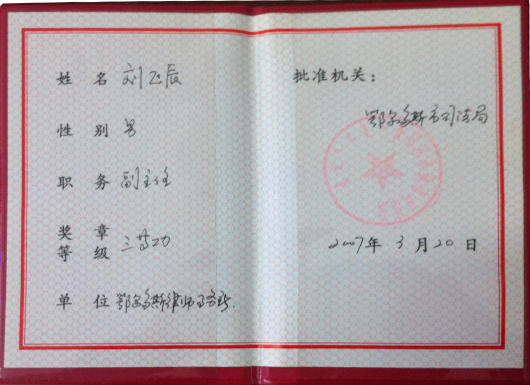 姓名 刘正辰
性别 男
职务 副主任
奖章等级 三等功
单位 鄂尔多斯律师事务所
批准机关：
鄂尔多斯市司法局
2007年3月20日